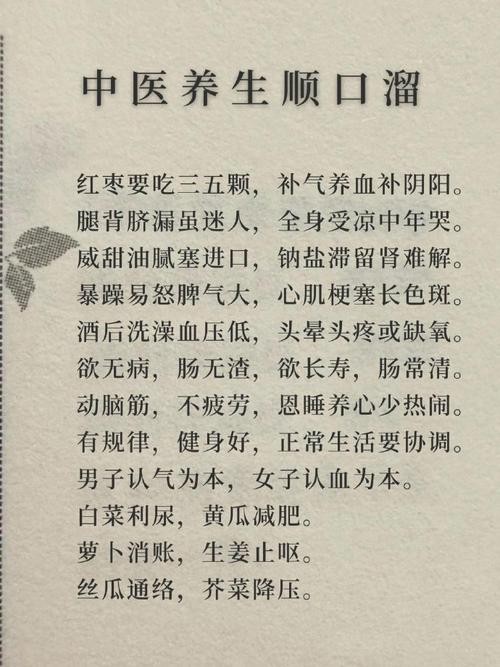 中医养生顺口溜
红枣要吃三五颗，补气养血补阴阳。
腿背脐漏虽迷人，全身受凉中年哭。
威甜油腻塞进口，钠盐滞留肾难解。
暴躁易怒脾气大，心肌梗塞长色斑。
酒后洗澡血压低，头晕头疼或缺氧。
欲无病，肠无渣，欲长寿，肠常清。
动脑筋，不疲劳，恩睡养心少热闹。
有规律，健身好，正常生活要协调。
男子认气为本，女子认血为本。
白菜利尿，黄瓜减肥。
萝卜消账，生姜止呕。
丝瓜通络，芥菜降压。